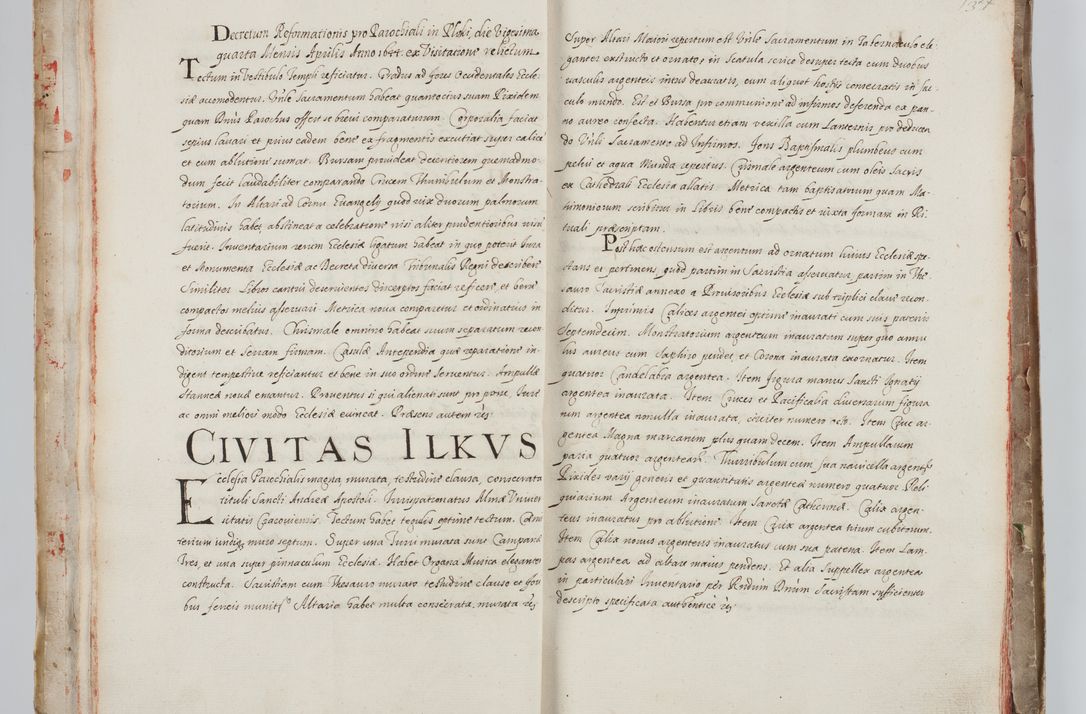 Decretum Reformationis pro Parochiali in Ploki, die Vigesima
quarta Mensis Aprilis Anno 1644 ex Visitatione relictum
Tectum in Vestibulo Templi reficiatur. Gradus ad fores Occidentales Eccle-
siæ accomodentur. Vnle Sacramentum habeat quantocius suam Pixidem
quam Dnus Parochus offert se breui comparaturum. Corporalia faciat
sepius lauari et prius eadem bene ex fragmentis excutiat super calice
et cum ablutione sumat. Bursam prouideat decentiorem quemadmo-
dum fecit laudabiliter comparando Crucem Thuribulum et Monstra-
torium. In Altari ad Cornu Euangely quod vix duorum palmorum
latitudinis habet, abstineat a celebratione nisi aliter prudentioribus visu
fuerit. Inuentarium rerum Ecclesiæ ligatum habeat in quo poterit Iura
et Monumenta Ecclesiæ ac Decreta diuersa Tribunalis Regni describere
Similiter Libros cantui deseruientes discerptos faciat reficere, et bene
compactos melius asseruari Metrica noua comparetur et ordinatius in
forma describatur. Chrismale omnino habeat suum separatum recon-
ditorium et Serram firmam. Casulæ Antependia quæ reparatione in-
digent tempestiue reficiantur et bene in suo ordine Seruentur. Ampullæ
Stanneæ nouæ emantur. Prouentus si qui alienati sunt pro posse, Iure
ac omni meliori modo Ecclesiæ euincat. Præsens autem &c
CIVITAS ILKVS
Ecclesia Parochialis magna murata, testudine clausa, consecrata
tituli Sancti Andreæ Apostoli. Iurispatronatus Almæ Vniuer
sitatis Cracouiensis. Tectum habet tegulis optime tectum. Cæm
terium undiq muro septum. Super una Turri murata sunt Campanæ
Tres, et una super pinnaculum Ecclesiæ. Habet Organa Musica eleganter
constructa. Sacristiam cum Thesauro murato testudine clauso et fori
bus ferreis munitis Altaria habet multa consecrata, murata &c
134
Super Altari Maiori repertum est Vnle Sacramentum in Tabernaculo ele-
ganter exstructo et ornato, in Scatula serico desuper tecta cum duobus
vasculis argenteis intus deauratis, cum aliquot hostijs consecratis in lu-
culo mundo. Est et Bursa pro communione ad infirmos deferenda ex pan-
no aureo confecta. Habentur etiam vexilla cum Lanternis pro deducen
do Vnli Sacramento ad Infirmos. Fons Baptismalis plumbeus cum
pelui et aqua Munda repertus. Crismale argenteum cum oleis Sacris
ex Cathedrali Ecclesia allatis. Metrica tam baptisatorum quam Ma-
trimoniorum scribitur in Libris bene compactis et iuxta formam in Ri-
tuali præscriptam.
Post hæc ostensum est argentum ad ornatum huius Ecclesiæ spe-
ctans et pertinens, quod partim in Sacristia asseruatur partim in The
sauro Sacristiæ annexo a Prouisoribus Ecclesiæ sub triplici claui recon-
ditur. Inprimis Calices argentei optime inaurati cum suis patenis
Septemdecim. Monstratorium argenteum inauratum super quo annu
lus aureus cum Saphiro pendet, et Corona inaurata exornatur. Item
quatuor Candelabra argentea. Item figura manus Sancti Ignatij
argentea inaurata. Item Cruces et Pacificalia diuersarum figura
rum argentea nonulla inaurata, circiter numero octo. Item Crux ar-
gentea Magna marcarum plus quam decem. Item Ampullarum
paria quatuor argentearum. Thurribulum cum sua nauicella argenteis
Pixides varij generis et quantitatis argenteæ numero quatuor Reli-
quiarium Argenteum inauratum Sanctæ Catherinæ. Calix argen-
teus inauratus pro ablutione. Item Crux argentea trium cubitorum.
Item Calix nouus argenteus inauratus cum sua patena. Item Lam-
pas argentea ad altare maius pendens. Et alia Suppellex argentea
in particulari Inuentario per Rndum Dnum Sacristam sufficienter
descripto specificata authentice &c